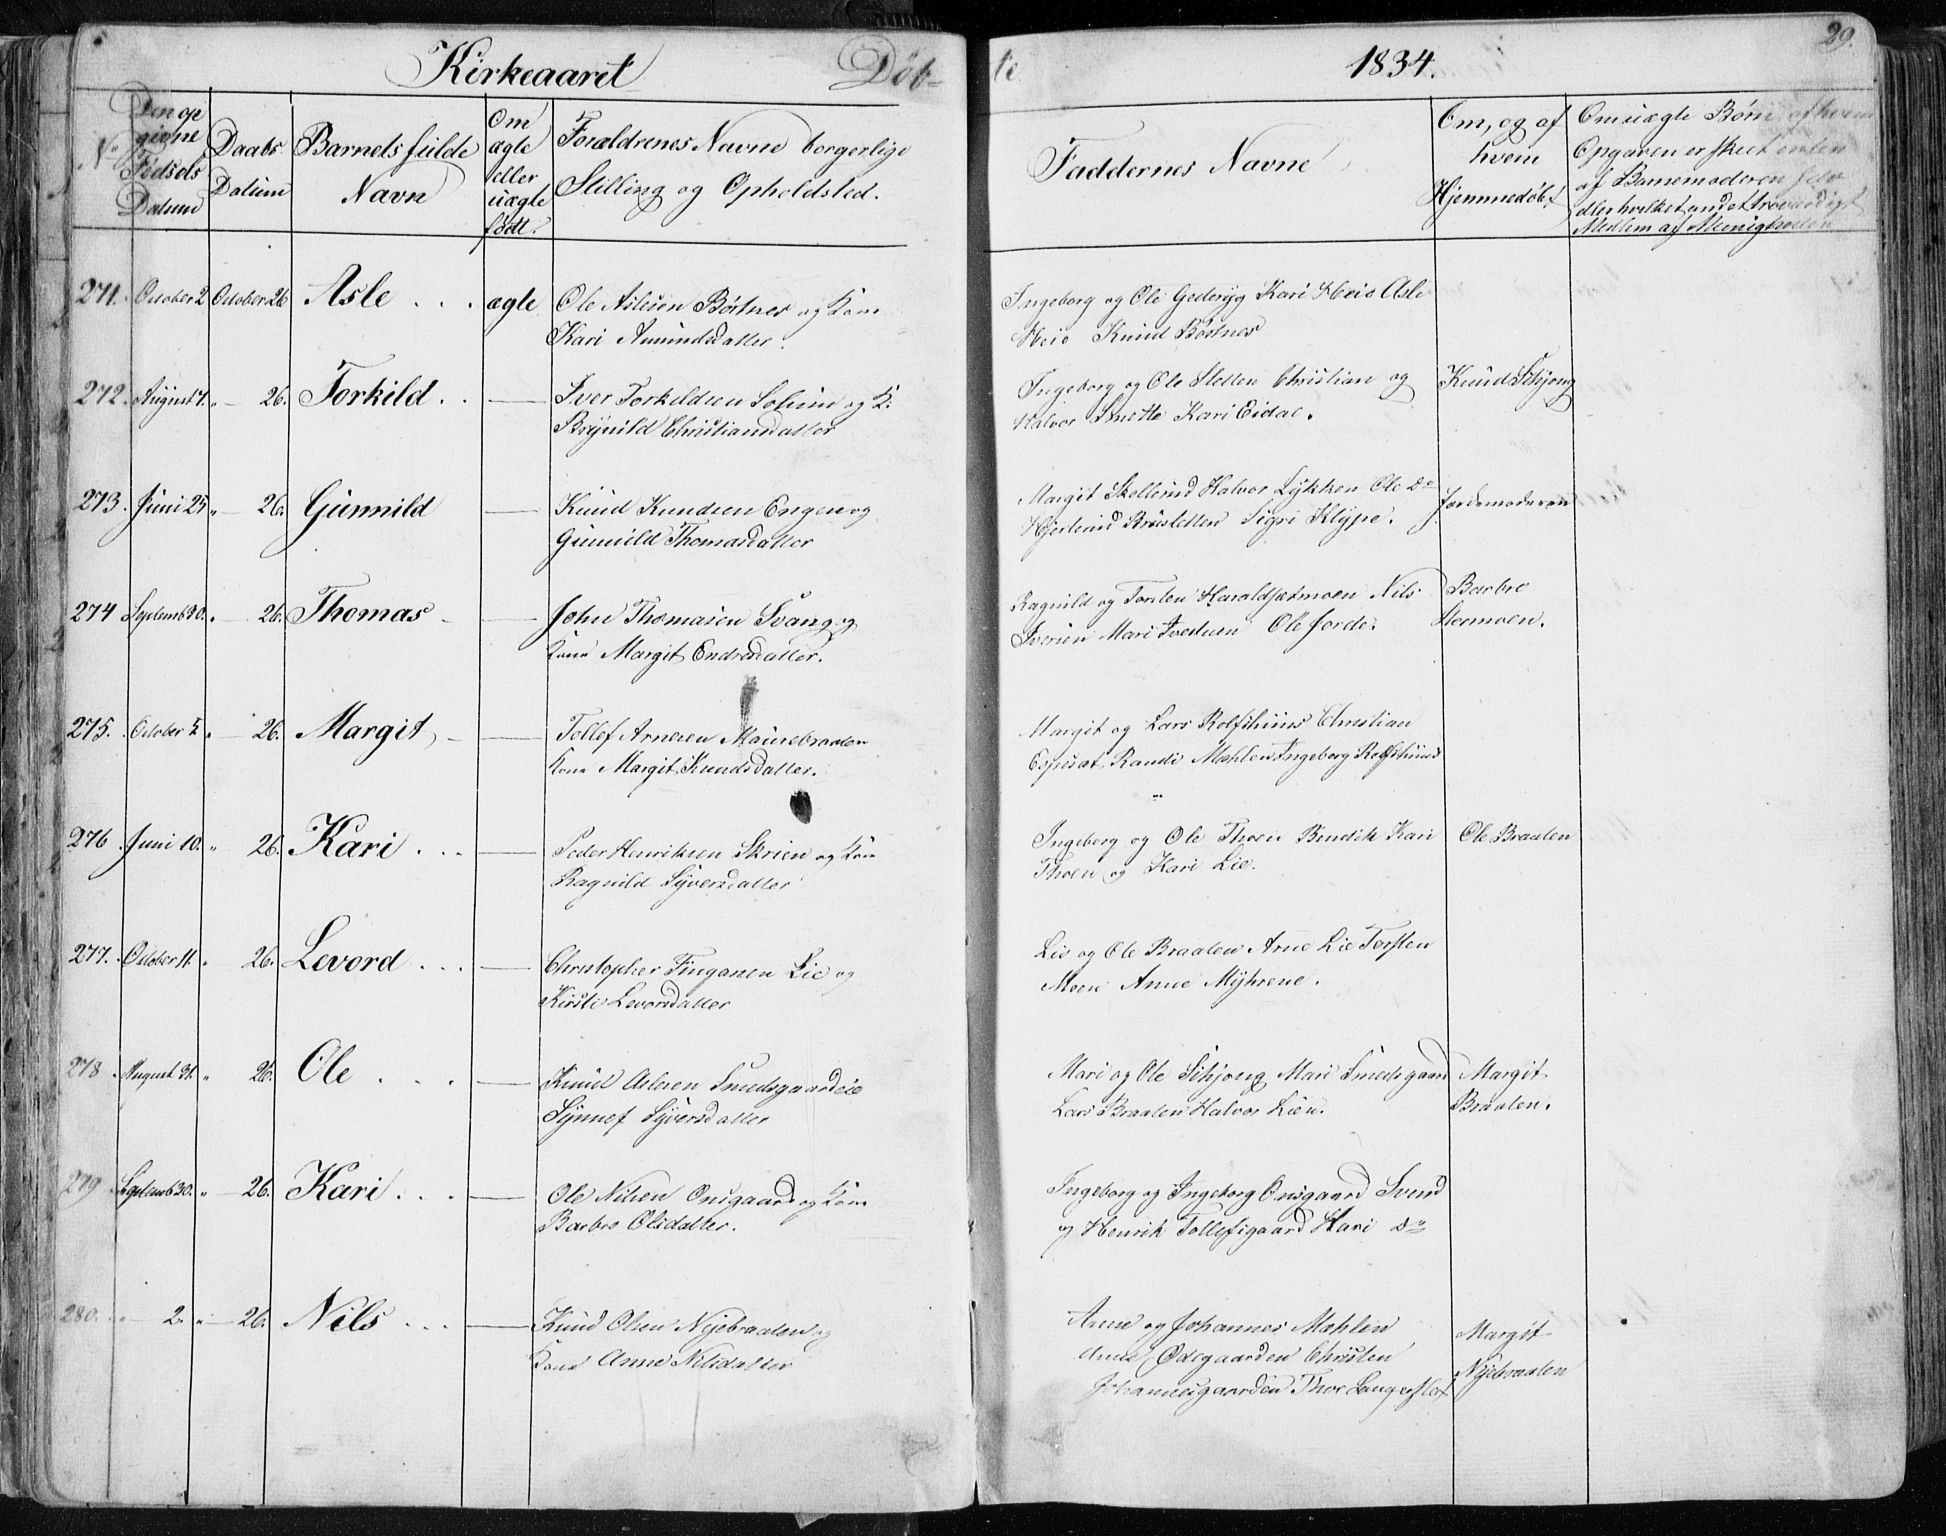 Kirkeaaret Døb-
te 1834. 29.
No
Den op
givne
Fødsels
Datum
Daabs
Datum
Barnets fulde
Navn
Om
ægte
eller
uægte
født.
Forældrenes Navne borgerlige
Stilling og Opholdsted.
Faddernes Navne
Om, og af
hvem
Hjemmedøbt
Om uægte Børn af hvem
Opgaven er skeet enten
af Barnemoderen selv
eller hvilket andet troværdigt
Medlem af Menigheden
271. October 2 October 26 Asle . . . ægte Ole Aslesen Böstnes og Kone
Kari Amundsdatter.
Ingeborg og Ole Gederyg Kari Heio Asle
Heio Knud Böstnes
272. August 7. " — 26. Torkild . . — Iver Torkildsen Solum og K:
Brynild Christiansdatter
Ingeborg og Ole Sletten Christian og
Halvor Smette Kari Eidal.
Knud Sikjong
273. Juni 25 " — 26. Gunnild — Knud Knudsen Engen og
Gunnild Thomasdatter
Margit Skollerud Halvor Lykken Ole do
Hjerterud Brusletten Sigri Klype.
Jordemoderen
274 Septemb 30. " — 26. Thomas — John Thomasen Svang og
Kone Margit Endresdatter.
Ragnild og Torsten Haraldsetmoen Nils
Iversen Mari Tvestuen Ole Jorde.
Barbro
Stermoen.
275. October 5 " — 26. Margit — Tollef Arnesen Maurebraaten
Kone Margit Knudsdatter.
Margit og Lars Rolfshuus Christian
Espeset Randi Mæhlen Ingeborg Rolfshuus
276 Juni 10. " — 26. Kari . . . — Peder Henriksen Skrien og Kone
Ragnild Syversdatter
Ingeborg og Ole Thoen Bendik Kari
Thoen og Kari Lie.
Ole Braaten
277. October 11. " 26. Levord . . . — Christopher Fingarsen Lie og
Kirsti Levorsdatter
Liv og Ole Braaten Arne Lie Torsten
Moen Anne Myhrene.
278. August 31. " 26. Ole . . . — Knud Aslesen Smedsgaardeie
Synnef Syversdatter
Mari og Ole Sikjong Mari Smedsgaard
Lars Braaten Halvor Lien.
Margit
Braaten.
279 Septemb 30. " — 26. Kari . . . — Ole Nilsen Onsgaard og Kone
Barbro Olsdatter.
Ingeborg og Ingeborg Onsgaard Svend
og Henrik Tollefsgaard Kari do
280. " — 2. " — 26. Nils . . . — Knud Olsen Nyebraaten og
Kone Anne Nilsdatter
Anne og Johannes Mæhlen
Anne Ødegaarden Christen
Johannesgaarden Thor Langeslet
Margit
Nyebraaten